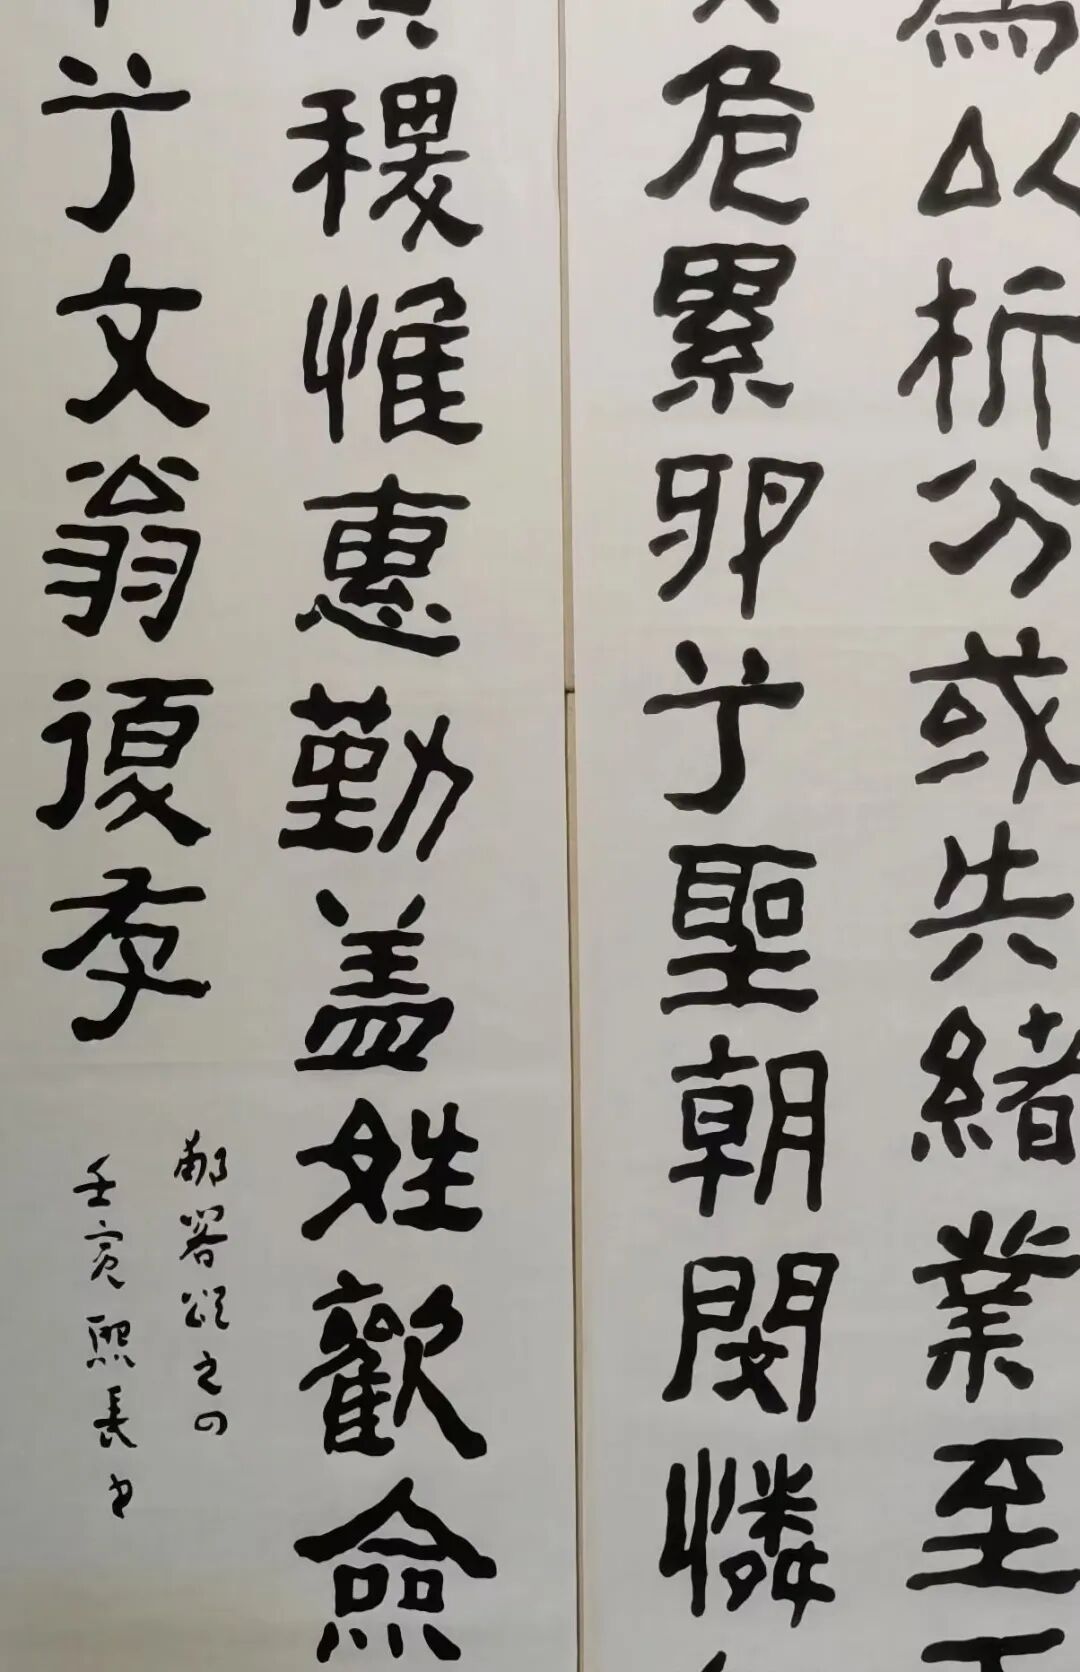 為以析分或失緒業至于
危累卵兮聖朝閔憐
稷惟惠勤盖姓歡僉
兮文翁復存
郙閣頌之四
壬寅熙長书